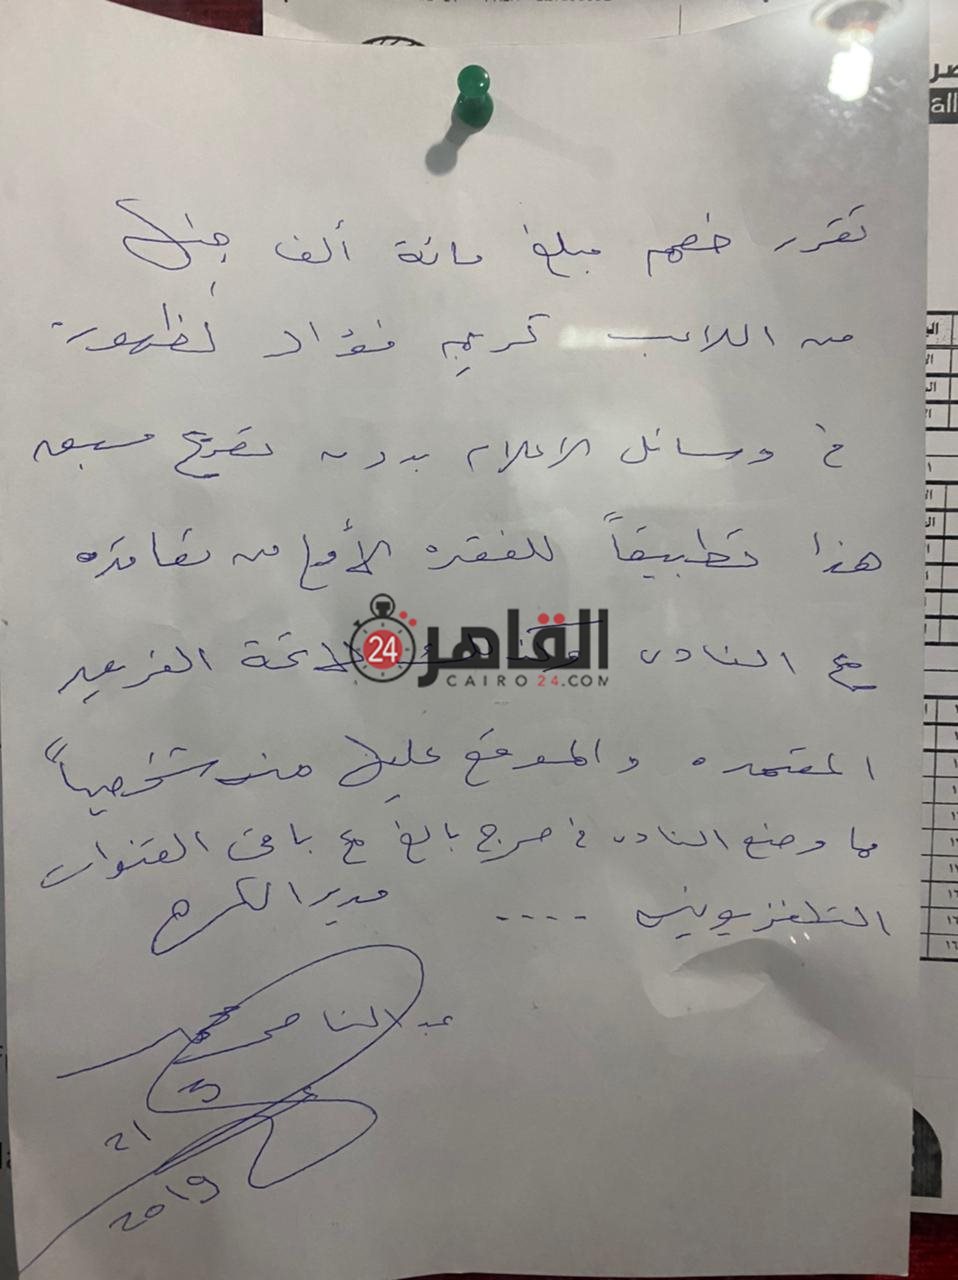 تقرر خصم مبلغ مائة ألف جنيه
من اللاعب كريم فؤاد لظهوره
في وسائل الاعلام بدون تصريح مسبق
هذا تطبيقاً للفقره الأولى من تعاقده
مع النادى وكذلك للائحة الفرعيه
المعتمده والموقع عليها منه شخصياً
مما وضع النادى في حرج بالغ مع باقى القنوات
التلفزيونيه ....
مديرالكره
عبدالناصر محمد
21
3
2019
القاهرة
24
CAIRO24.COM